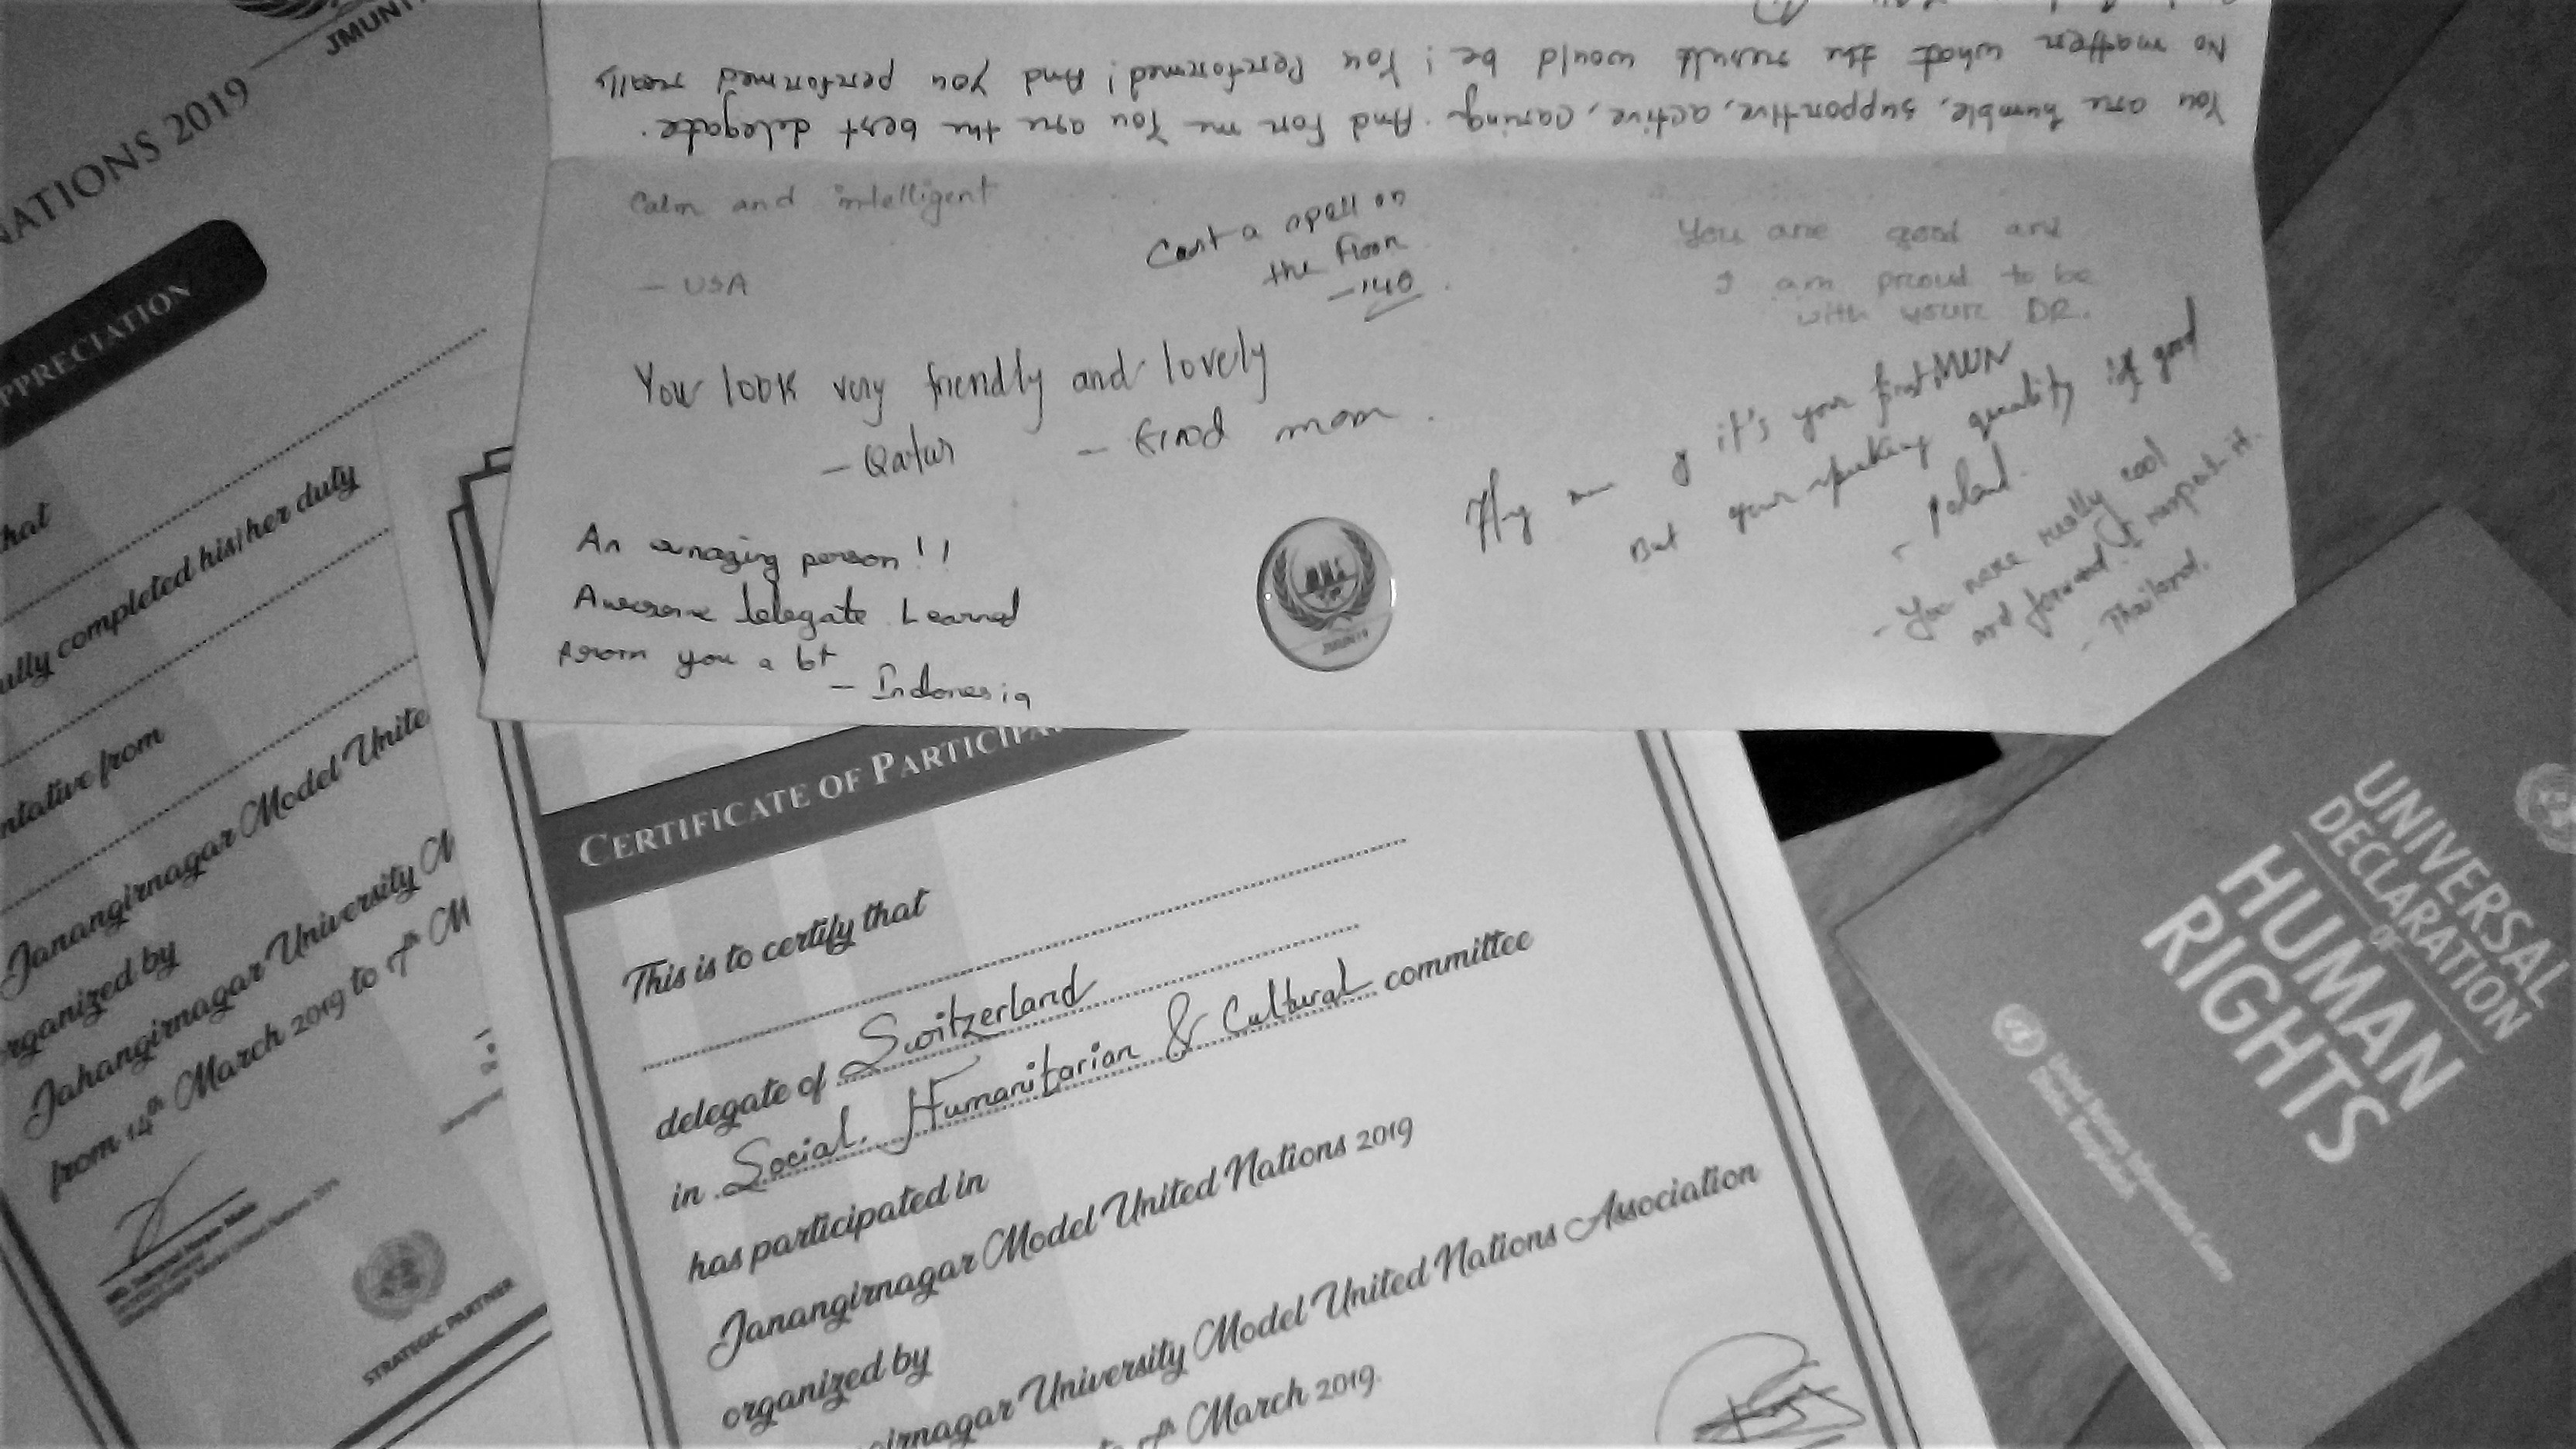 JMUN
NATIONS 2019
PPRECIATION
hat
ully completed his/her duty
ntative from
Janangirnagar Model Unite
rganized by
Jahangirnagar University M
from 14th March 2019 to 17th M
STRATEGIC PARTNER
You are humble, supportive, active, caring. And for me You are the best delegate.
No matter what the result would be! You Performed! And you performed really
Calm and intelligent
- USA
Cast a spell on
the floor
You are good and
I am proud to be
with your DR.
You look very friendly and lovely
- Qatar
- Kind mom.
it's your first MUN
But your speaking quality is good
- Poland.
- You were really cool
and forward. I respect it.
- Thailand.
An amazing person!!
Awesome delegate. Learned
from you a lot
- Indonesia
CERTIFICATE OF PARTICIPA
This is to certify that
delegate of Switzerland
in Social, Humanitarian & Cultural committee
has participated in
Janangirnagar Model United Nations 2019
organized by
girnagar University Model United Nations Association
to 17th March 2019.
UNIVERSAL
DECLARATION
OF
HUMAN
RIGHTS
United Nations Information Centre